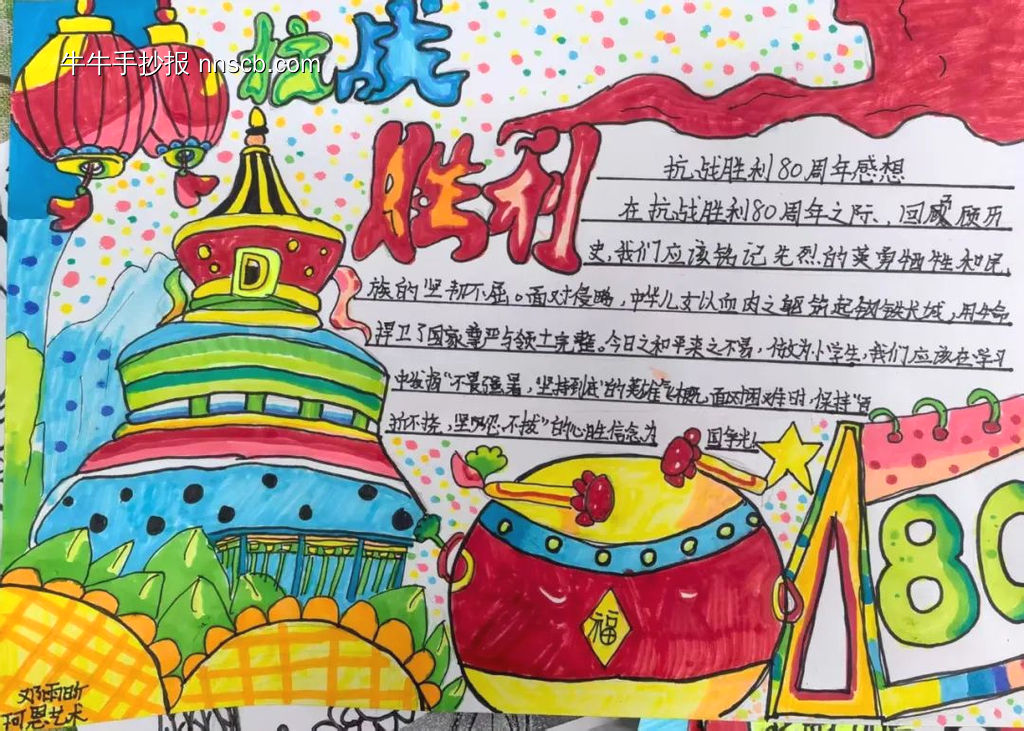 牛牛手抄报 nnscb.com
抗战
胜利
抗战胜利80周年感想
在抗战胜利80周年之际、回顾历
史,我们应该铭记先烈的英勇牺牲和民
族的坚韧不屈。面对侵略,中华儿女以血肉之躯筑起钢铁长城,用生命
捍卫了国家尊严与领土完整。今日之和平来之不易,作为小学生,我们应该在学习
中发扬“不畏强暴,坚持到底”的英雄气概,面对困难时,保持“百
折不挠,坚忍不拔”的必胜信念,为 国争光
福
80
邓雨昕
珂恩艺术